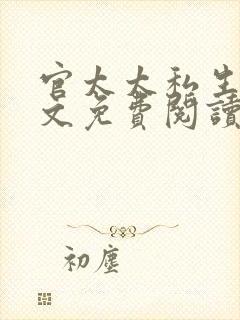 官太太私生
文免費閱讀
初塵